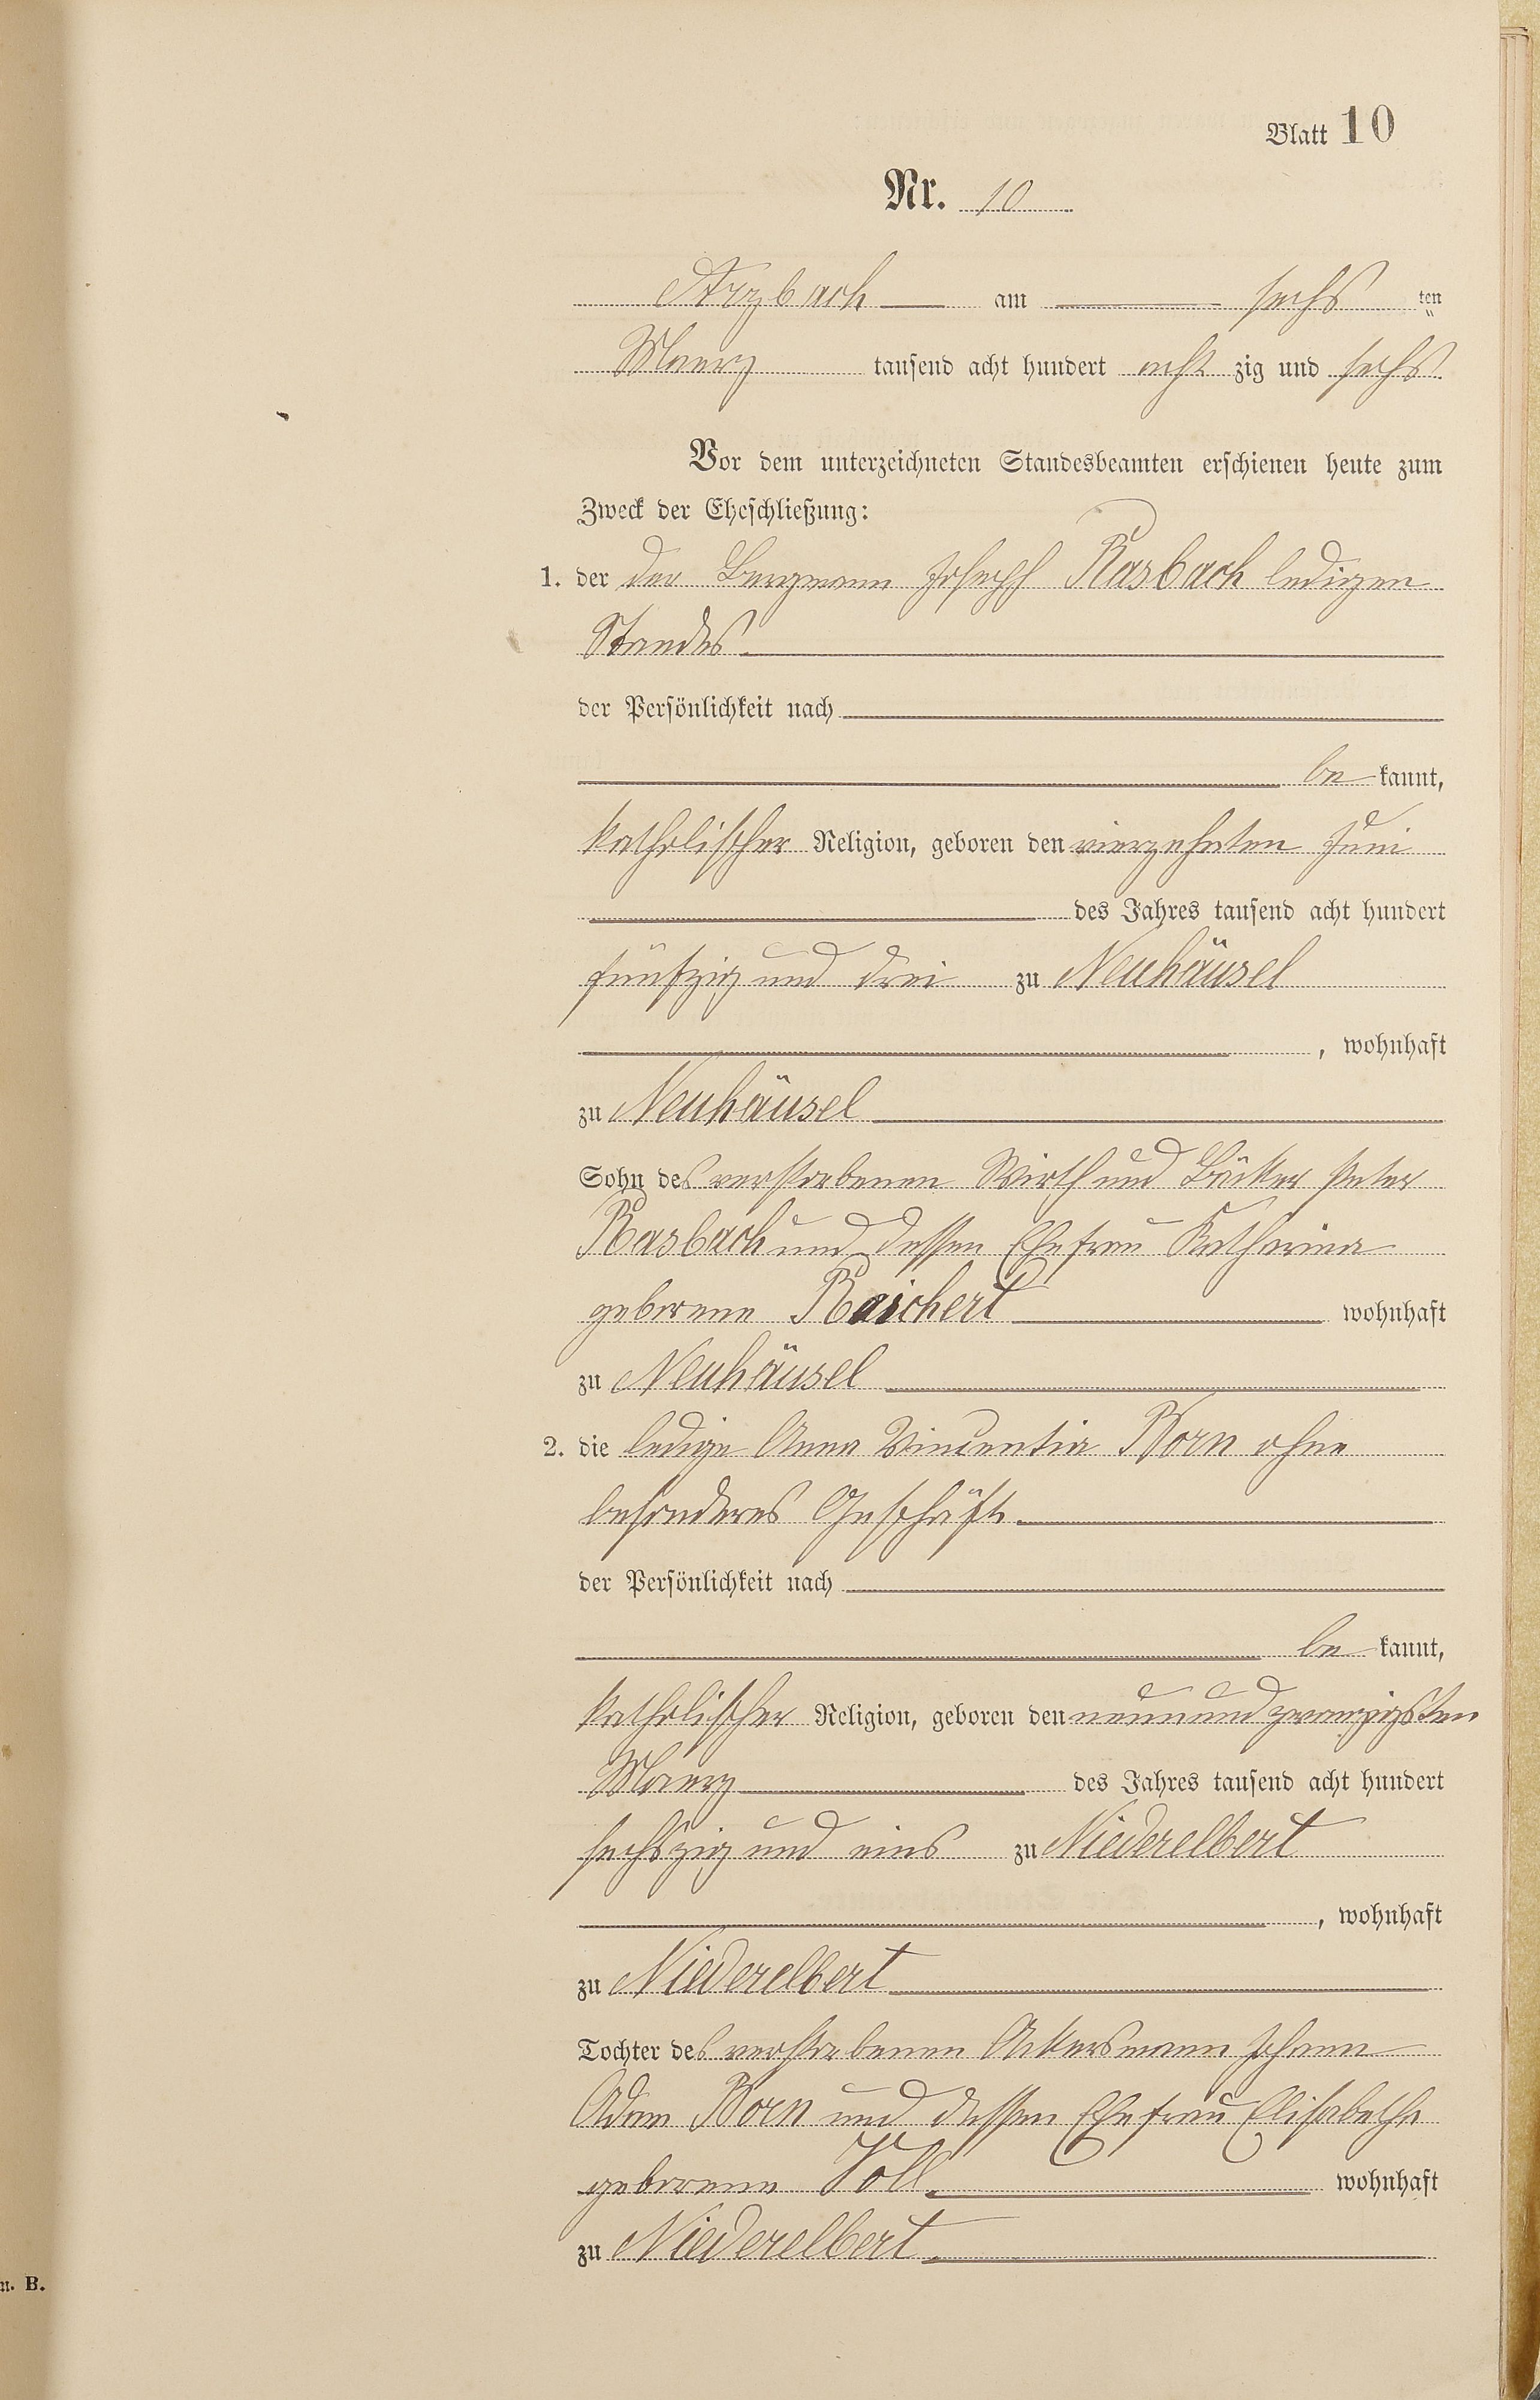 Blatt 10
Nr. 10
Arzbach am sechs ten
Maerz tausend acht hundert acht zig und sechs
Vor dem unterzeichneten Standesbeamten erschienen heute zum
Zweck der Eheschließung:
1. der der Bergmann Joseph Rasbach ledigen
Standes
der Persönlichkeit nach
be kannt,
katholischer Religion, geboren den vierzehnten Juni
des Jahres tausend acht hundert
fünfzig und drei zu Neuhäusel
, wohnhaft
zu Neuhäusel
Sohn des verstorbenen Wirth und Bäcker Peter
Rasbach und dessen Ehefrau Katharina
geborene Reichert wohnhaft
zu Neuhäusel
2. die ledige Anna Vincentia Born ohne
besonderes Geschäft.
der Persönlichkeit nach
be kannt,
katholischer Religion, geboren den neunundzwanzigsten
Maerz des Jahres tausend acht hundert
sechszig und eins zu Niederelbert
, wohnhaft
zu Niederelbert
Tochter des verstorbenen Ackersmann Johann
Adam Born und dessen Ehefrau Elisabethe
geborene Noll. wohnhaft
zu Niederelbert.
n. B.